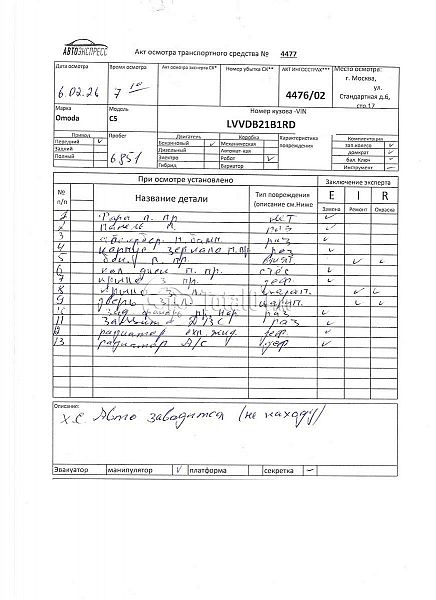 АВТОЭКСПРЕСС
Акт осмотра транспортного средства № 4477
Дата осмотра Время осмотра Акт осмотра эксперта СК* Номер убытка СК** АКТ ИНГОССТРАХ*** Место осмотра:
6.02.26 7 10 4476/02 г. Москва, ул. Стандартная д.6, стр.17
Марка Модель Номер кузова -VIN
Omoda C5 LVVDB21B1RD
Привод Пробег Двигатель Коробка Характеристика повреждений Комплектация
Передний v 6851 Бензиновый v Механическая зап.колесо v
Задний Дизельный Автомат-кая домкрат v
Полный Электро Робот v бал. Ключ ~
Гибрид Вариатор Инструмент —
При осмотре установлено Заключение эксперта
№ п/п Название детали Тип повреждения (описание см.Ниже E I R
Замена Ремонт Окраска
1 Фара п. пр НЕТ v
2 Панель п. раз v
3 п. раз v
4 зеркала п. пр раз v
5 п. пр. v v
6 п. пр. v
7 крыло пр. деф. v
8 крыло з. пр. v v
9 дверь з. v v
10 зад. фонарь пр. нар раз v
11 ДВС раз v
12 радиатор охл. жид. деф. v
13 радиатор А/С деф v
Описание:
Х.С Авто заводится (на находу)
Эвакуатор манипулятор v платформа секретка —